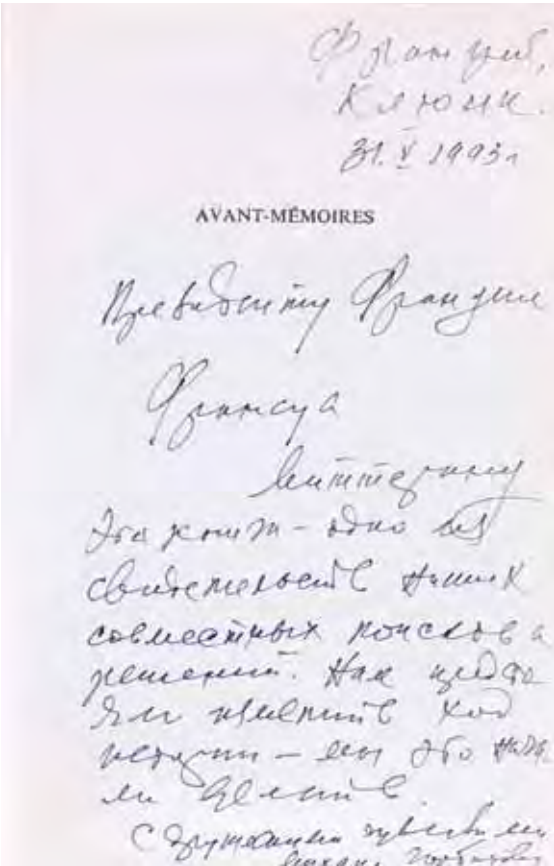 Франция,
Клюни.
31. V 1993 г
AVANT-MÉMOIRES
Президенту Франции
Франсуа
Миттерану
Эта книга – одно из
свидетельств наших
совместных поисков и
решений. Нам
изменить ход
истории – мы это нача
ли делать.
С дружескими чувствами
Михаил Горбачев